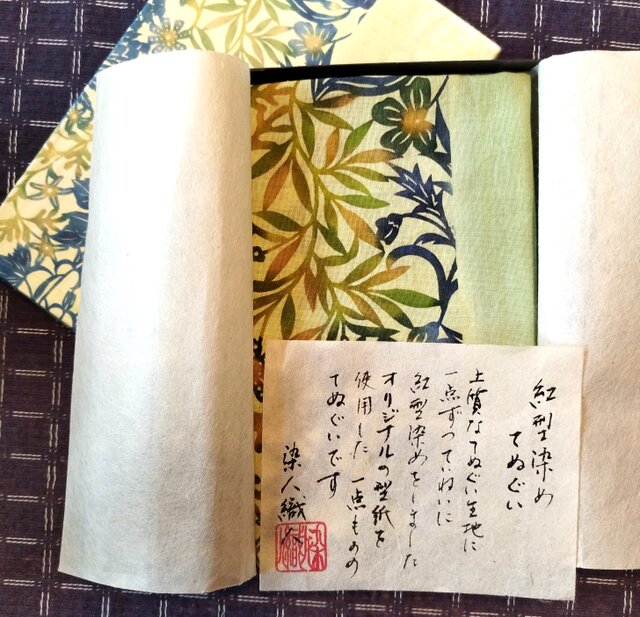 紅型染め
てぬぐい
上質なてぬぐい生地に
一点ずつていねいに
紅型染めをしました
オリジナルの型紙を
使用した一点ものの
てぬぐいです
染人織人